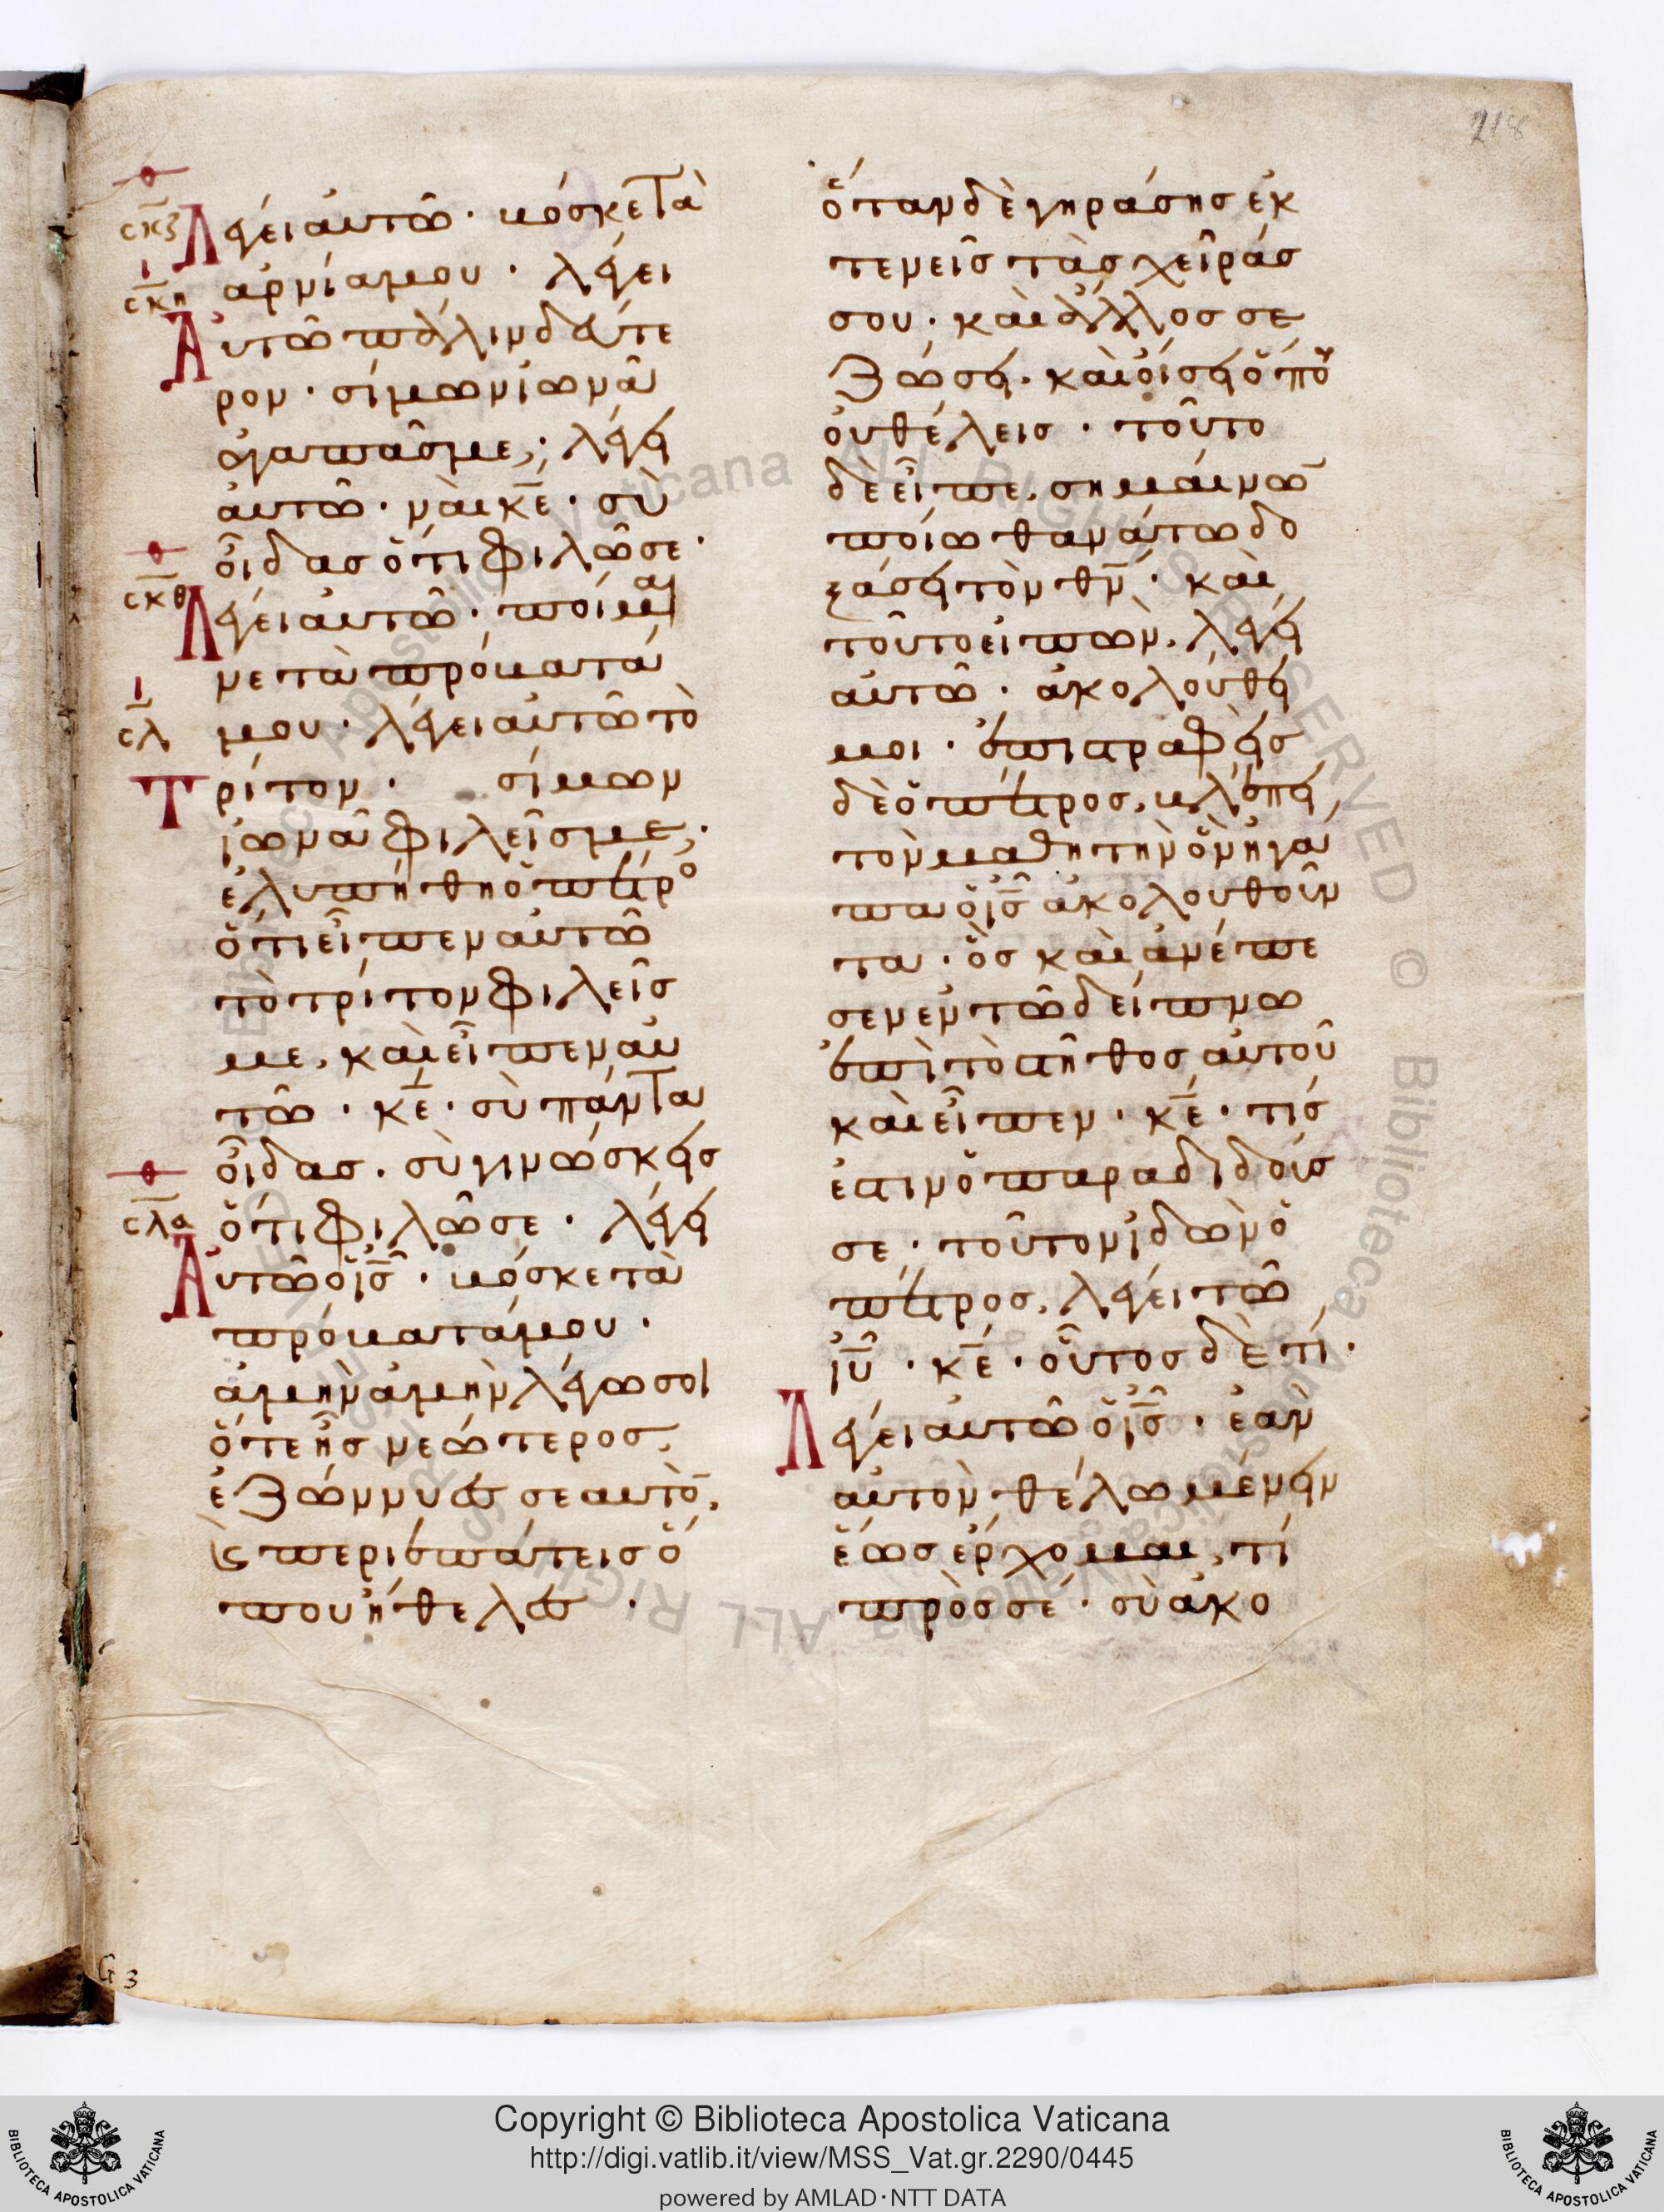 218
σκζ Λέγει αυτῶ · βόσκε τὰ
σκη ἀρνία μου · λέγει
Αὐτῶ πάλιν δεύτε
ρον · σίμων ἰωνᾶ
ἀγαπᾶς με; λέγει
αὐτῶ · ναὶ κ̅ε̅ · σὺ
οἶδας ὅτι φιλῶ σε ·
σκθ Λέγει αὐτῶ · ποίμαι
νε τὰ πρόβατά
σλ μου · λέγει αὐτῶ τὸ
Τρίτον · σίμων
ἰωνᾶ φιλεῖς με;
ἐλυπήθη ὁ πέτρο
ὅτι εἶπεν αὐτῶ
τὸ τρίτον φιλεῖς
με, καὶ εἶπεν αὐ
τῶ · κ̅ε̅ · σὺ πάντα
οἶδας · σὺ γινώσκεις
σλα ὅτι φιλῶ σε · λέγει
Αὐτῶ ὁ ι̅ς̅ · βόσκε τὰ
πρόβατά μου ·
ἀμὴν ἀμὴν λέγω σοι
ὅτε ἦς νεώτερος,
ἐζώννυες σεαυτὸ̅,
κ̀ περιεπάτεις ὅ
που ἤθελες ·
ὅταν δὲ γηράσης ἐκ
τενεῖς τὰς χεῖράς
σου · καὶ ἄλλος σε
ζώσει · καὶ οἴσει ὅπου
οὐ θέλεις · τοῦτο
δὲ εἶπε, σημαίνω̅
ποίω θανάτω δο
ξάσει τὸν θ̅ν̅ · καὶ
τοῦτο εἰπὼν, λέγει
αὐτῶ · ἀκολούθει
μοι · ἐπιστραφεὶς
δὲ ὁ πέτρος, βλέπει
τὸν μαθητὴν ὃν ἠγά
πα ὁ ι̅ς̅ ἀκολουθοῦν
τα · ὃς καὶ ἀνέπε
σεν ἐν τῶ δείπνω
ἐπὶ τὸ στῆθος αὐτοῦ
καὶ εἶπεν · κ̅ε̅ · τίς
ἐστιν ὁ παραδιδούς
σε · τοῦτον ἰδὼν ὁ
πέτρος, λέγει τῶ
ι̅υ̅ · κ̅ε̅ · οὗτος δὲ τί ·
Λέγει αὐτῶ ὁ ι̅ς̅ · ἐὰν
αὐτὸν θέλω μένειν
ἕως ἔρχομαι, τί
πρὸς σέ · σὺ ἀκο
G 3
Copyright © Biblioteca Apostolica Vaticana
http://digi.vatlib.it/view/MSS_Vat.gr.2290/0445
powered by AMLAD·NTT DATA
BIBLIOTECA APOSTOLICA VATICANA
BIBLIOTECA APOSTOLICA VATICANA